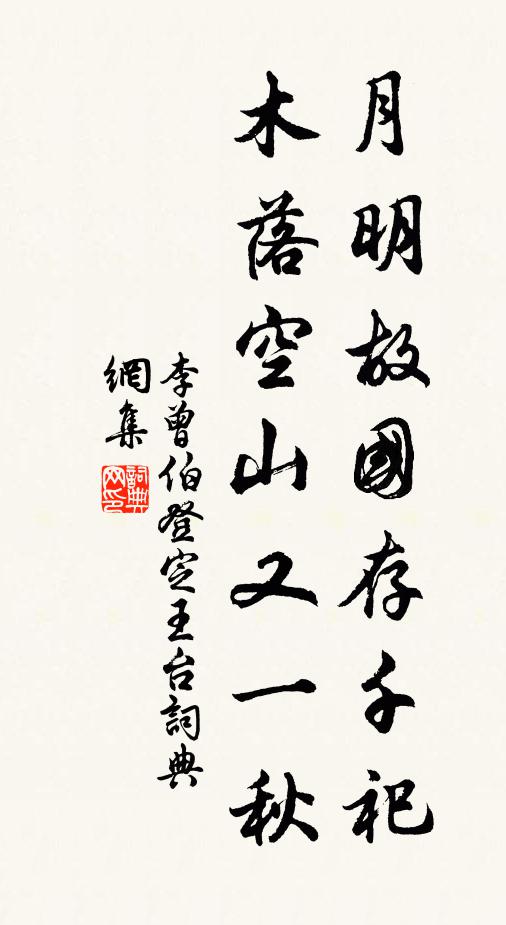 月明故國存千祀
木落空山又一秋
李曾伯登定王台詞典
網集
詞典
网印